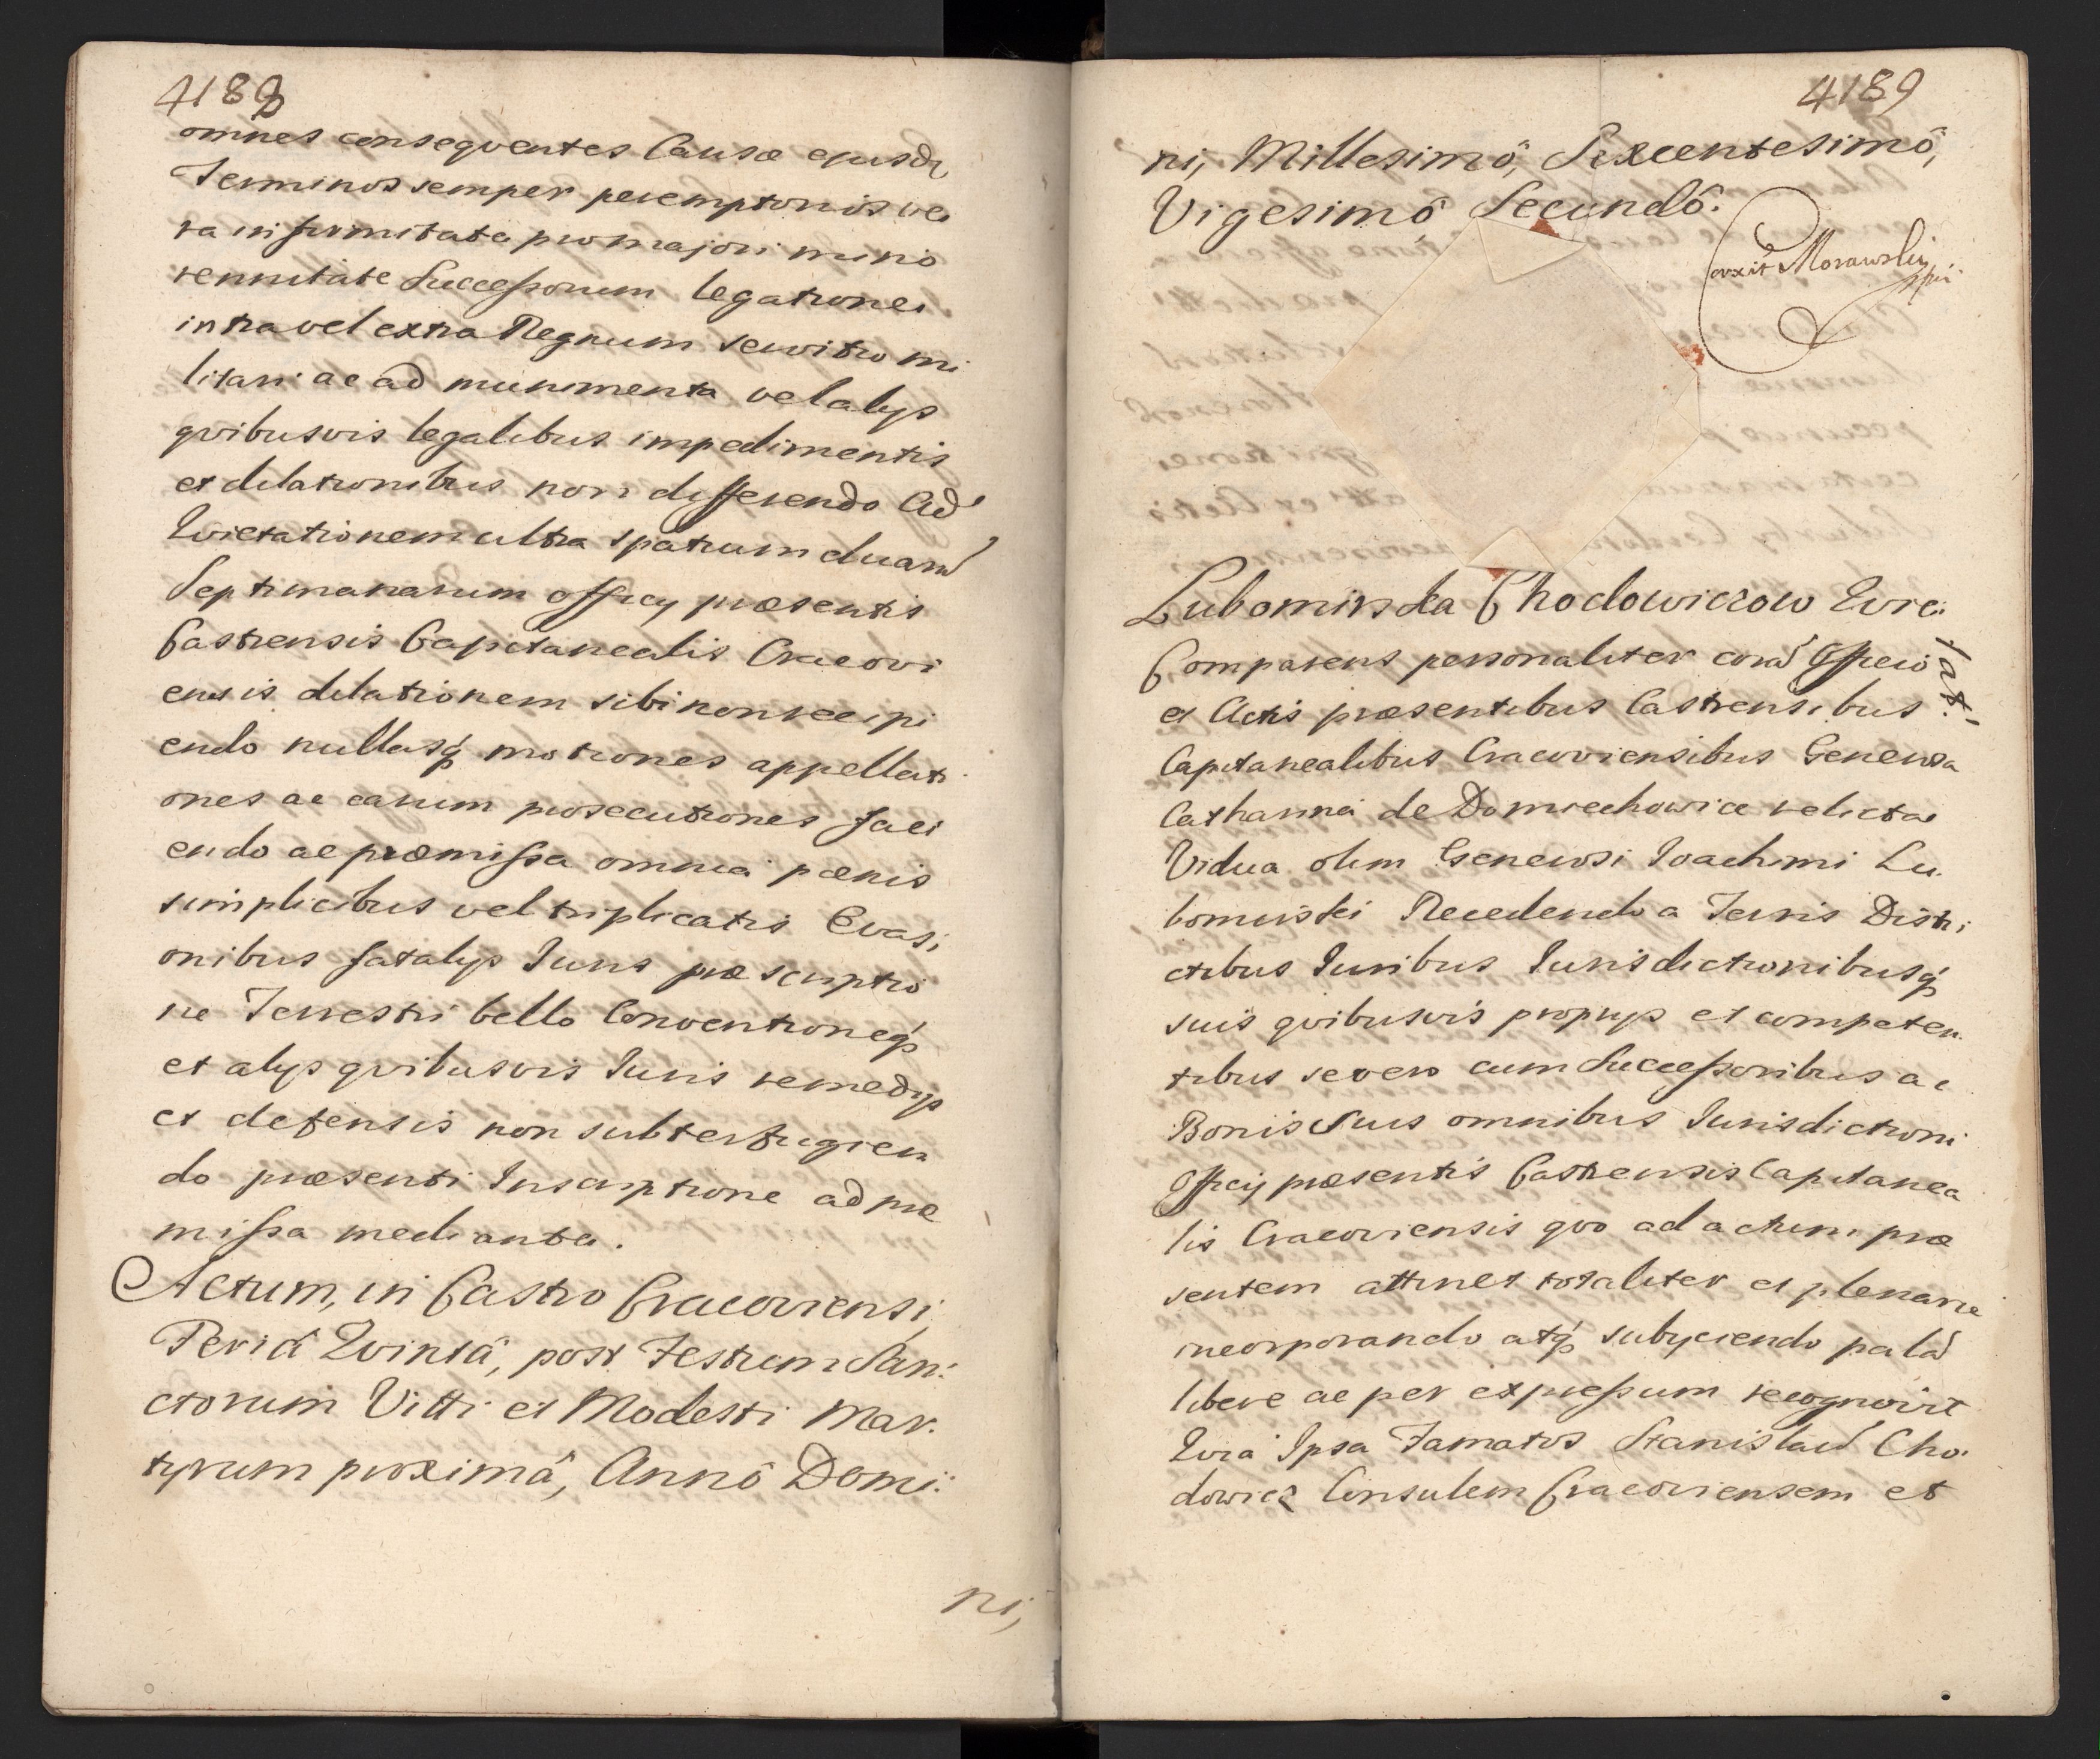 4188
omnes conseqventes Causæ ejusdē
Terminos semper peremptorios ve
ra infirmitate pro majori mino
rennitate Successorum legationei
intra vel extra Regnum servitio mi
litari ac ad munimenta vel alys
qvibusvis legalibus impedimentis
et dilationibus non differendo Ad
Qvietationem ultra spatium duarū
Septimanarum officy præsentis
Castrensis Capitanealis Cracovi
ensis dilationem sibi non recipi
endo nullasq́ motiones appellati
ones ac earum prosecutiones faci
endo ac præmissa omnia pænis
simplicibus vel triplicatis Evasi
onibus fatalys Juris præscriptio
ne Terrestri bello Conventioneq́
et alys qvibusvis Juris remedys
et defensis non subterfugien
do præsenti Inscriptione ad præ
missa mediante.
Actum, in Castro Cracoviensi,
Feriâ Qvintâ, post Festum San:
ctorum Vitti et Modesti Mar.
tyrum proximâ, Annô Domi:
ni,
4189
ni, Millesimô, Sexcentesimô,
Vigesimô Secundô.
Coxit Morawski
mpii
Lubominska Chodowiczow Qvie:
tat:
Comparens personaliter corā Officio
et Actis præsentibus Castrensibus
Capitanealibus Cracoviensibus Generosa
Catharina de Domiechowice relicta
Vidua olim Generosi Joachimi Lu.
bominski Recedendo a Terris Distri
ctibus Juribus Jurisdictionibusq́
suis qvibusvis proprys et competen.
tibus se vero cum Successoribus ac
Bonis suis omnibus Jurisdictioni
Officy præsentis Castrensis Capitanea
lis Cracoviensis qvo ad actum præ
sentem attinet totaliter et plenarie
incorporando atq́ subyciendo palā
libere ac per expressum recognovit
Qvia Ipsa Famatos Stanislaū Cho.
dowicz Consulem Cracoviensem et